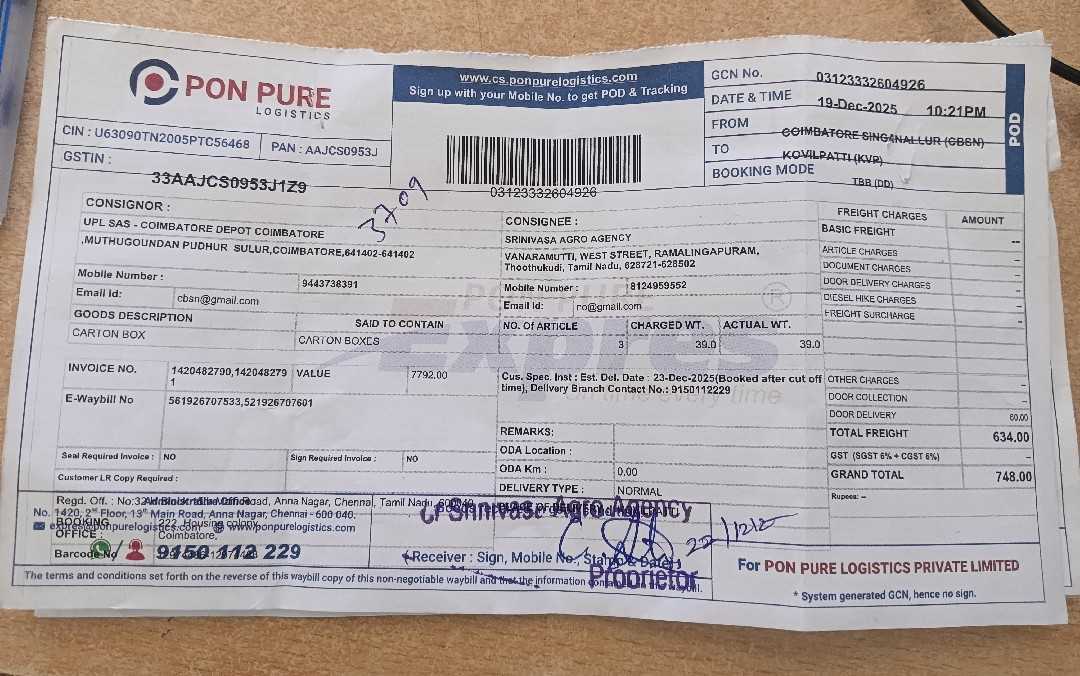 PON PURE
LOGISTICS
www.cs.ponpurelogistics.com
Sign up with your Mobile No. to get POD & Tracking
GCN No. 03123332604926
DATE & TIME 19-Dec-2025 10:21PM
FROM COIMBATORE SINGANALLUR (CBSN)
TO KOVILPATTI (KVP)
BOOKING MODE TBB (DD)
POD
CIN : U63090TN2005PTC56468 PAN : AAJCS0953J
GSTIN :
33AAJCS0953J1Z9
03123332604926
3709
CONSIGNOR :
UPL SAS - COIMBATORE DEPOT COIMBATORE
,MUTHUGOUNDAN PUDHUR SULUR,COIMBATORE,641402-641402
Mobile Number : 9443738391
Email Id: cbsn@gmail.com
CONSIGNEE :
SRINIVASA AGRO AGENCY
VANARAMUTTI, WEST STREET, RAMALINGAPURAM,
Thoothukudi, Tamil Nadu, 628721-628502
Mobile Number : 8124959552
Email Id: ro@gmail.com
GOODS DESCRIPTION SAID TO CONTAIN
CARTON BOX CARTON BOXES
NO. Of ARTICLE CHARGED WT. ACTUAL WT.
3 39.0 39.0
PON PURE
Expres
®
on time every time
INVOICE NO. 1420482790,142048279
1
VALUE 7792.00
E-Waybill No 561926707533,521926707601
Seal Required Invoice : NO Sign Required Invoice : NO
Customer LR Copy Required :
Cus. Spec. Inst : Est. Del. Date : 23-Dec-2025(Booked after cut off
time), Delivery Branch Contact No.: 9150112229
REMARKS:
ODA Location :
ODA Km : 0.00
DELIVERY TYPE : NORMAL
FREIGHT CHARGES AMOUNT
BASIC FREIGHT --
ARTICLE CHARGES –
DOCUMENT CHARGES –
DOOR DELIVERY CHARGES –
DIESEL HIKE CHARGES –
FREIGHT SURCHARGE –
OTHER CHARGES –
DOOR COLLECTION –
DOOR DELIVERY 60.00
TOTAL FREIGHT 634.00
GST (SGST 6% + CGST 6%) –
GRAND TOTAL 748.00
Rupees: –
Regd. Off. : No:32 Road, Anna Nagar, Chennai, Tamil Nadu, 600040
No. 1420, 2nd Floor, 13th Main Road, Anna Nagar, Chennai - 600 040.
expres@ponpurelogistics.com www.ponpurelogistics.com
BOOKING
OFFICE :
222, Housing colony
Coimbatore,
Barcode No
9150 112 229
Shnivasa Agro Agency
22/12/2
Receiver : Sign, Mobile No., Stamp & Date
Proprietor
For PON PURE LOGISTICS PRIVATE LIMITED
* System generated GCN, hence no sign.
The terms and conditions set forth on the reverse of this waybill copy of this non-negotiable waybill and that the information